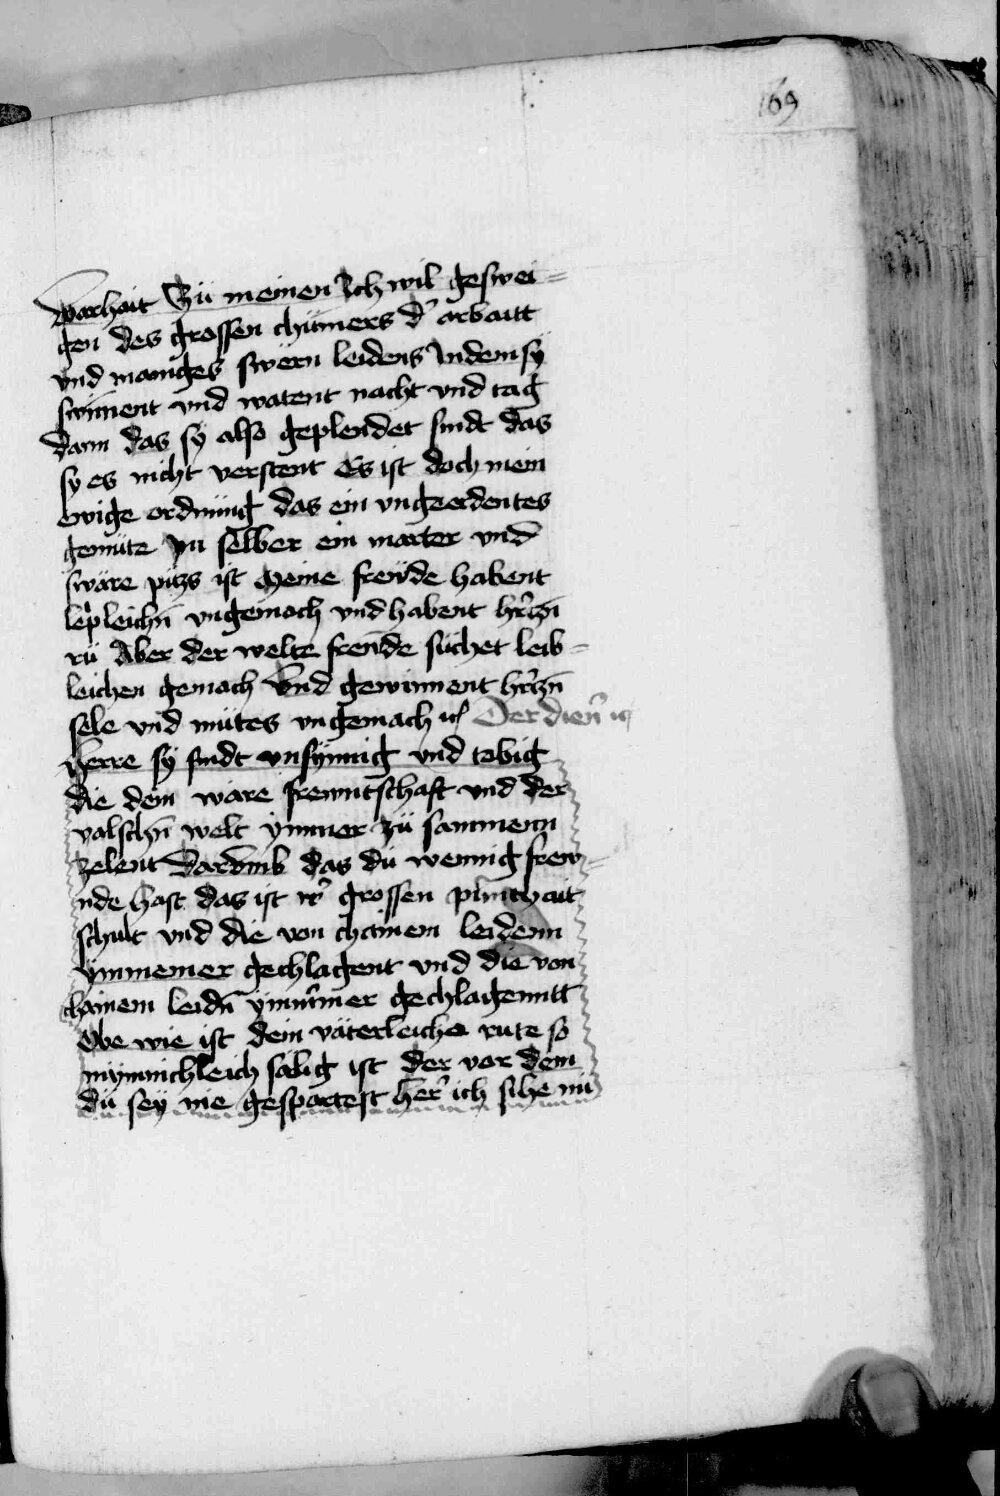 169
Warhait Zü meinen Ich wil geswei-
gen des grossen chümers d' arbaitt
vnd maniges swern leidens Indem sÿ
swiment vnd watent nacht vnd tag
dann das sÿ also geplendet sindt das
sy es nicht verstent Es ist doch mein
ewige ordnüng das ein vngeordentes
gemüte Im selber ein marter vnd
swäre püzs ist Meine freüde habent
lepleichn̄ vngemach vnd habent hr̄czn̄
rü Aber der welte freude süchet leib-
leichen gemach Vnd gewinnent hr̄czn̄
sele vnd mütes vngemach Der dien̄
Herre sÿ sindt vnsÿnnig vnd tobig
die dein ware frewntschaft vnd der
valschn̄ welt ÿmmer zü sammenn
zelent Darvmb das dü wennig frew-
nde hast das ist ir' grossen plinthait
schült vnd die von chainem leidenn
ÿmmemer gechlagent vnd die von
chainem leidn̄ ÿmmermer gechlagenntt
Obe wie ist dein väterleiche rute so
mÿnnichleich sälig ist der vor dem
dü seÿ nie gespartest her' ich sihe nü